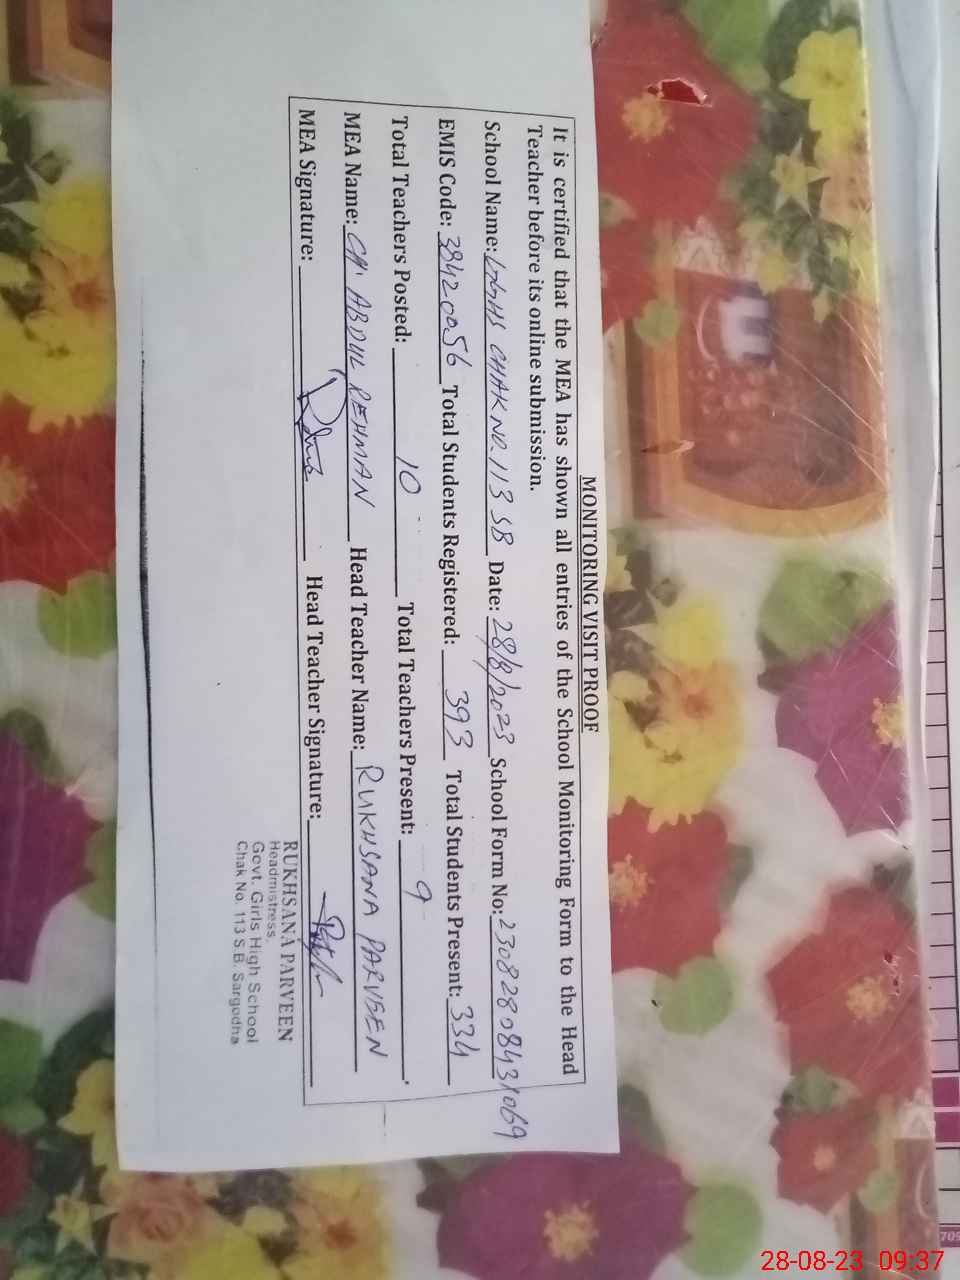 MONITORING VISIT PROOF
It is certified that the MEA has shown all entries of the School Monitoring Form to the Head
Teacher before its online submission.
School Name: CHAK NO. 113 SB Date: 28/8/2023 School Form No: 2308280843
EMIS Code: 38420056 Total Students Registered: 393 Total Students Present: 334
Total Teachers Posted: 10 Total Teachers Present: 9
MEA Name: CH. ABDUL REHMAN Head Teacher Name: RUKHSANA PARVEEN
MEA Signature: Head Teacher Signature:
RUKHSANA PARVEEN
Headmistress,
Govt. Girls High School
Chak No. 113 S.B. Sargodha
28-08-23 09:37